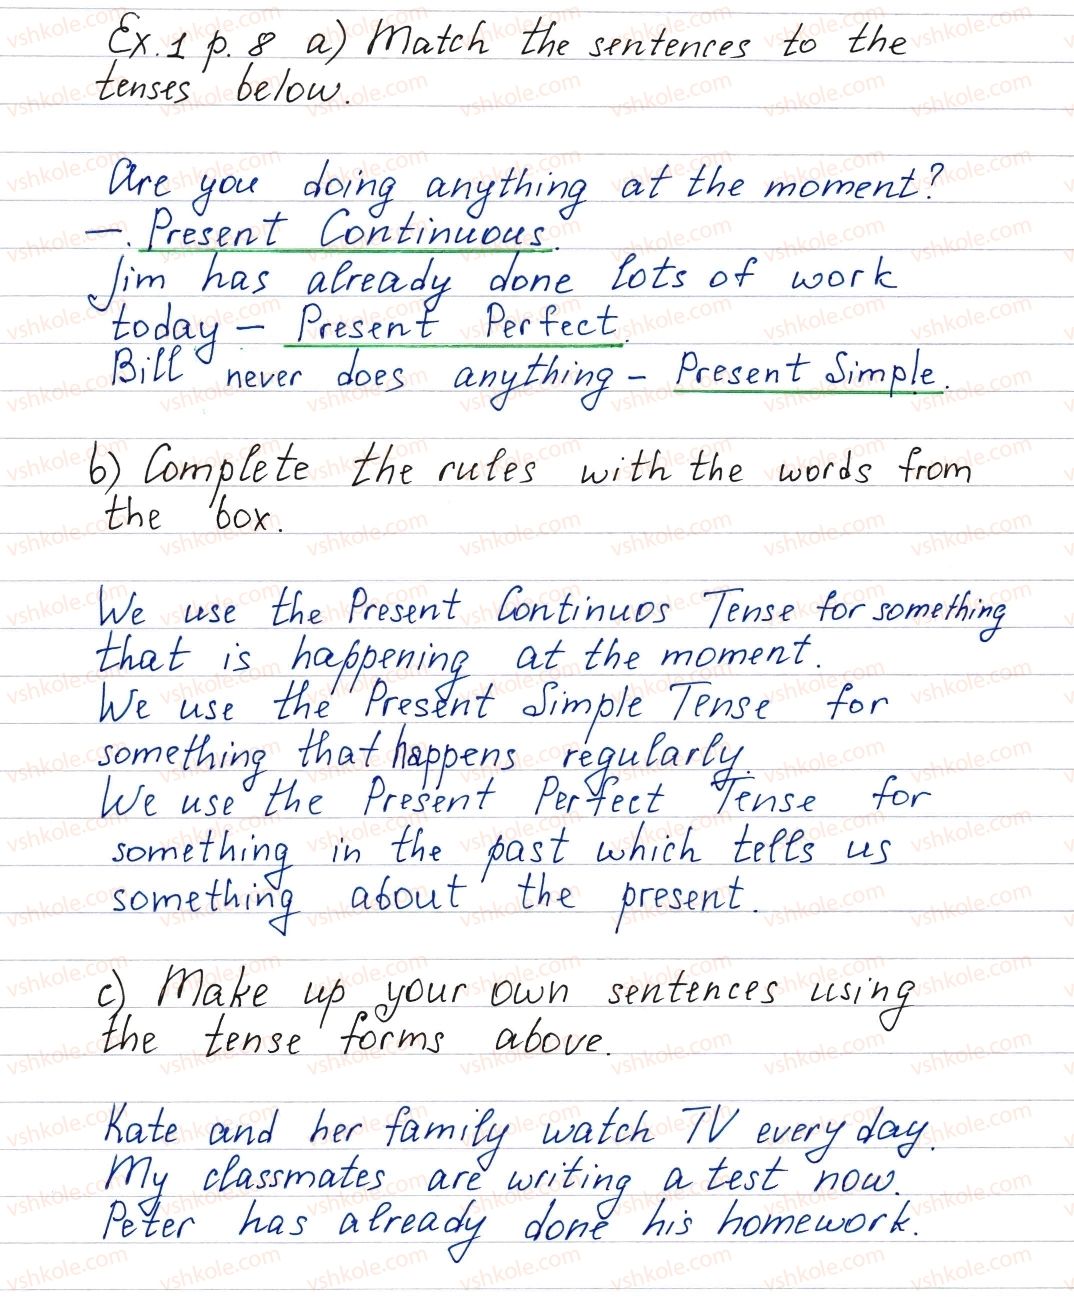 Ex. 1 p. 8 a) Match the sentences to the
tenses below.
Are you doing anything at the moment?
–. Present Continuous.
Jim has already done lots of work
today – Present Perfect.
Bill never does anything – Present Simple.
b) Complete the rules with the words from
the box.
We use the Present Continuos Tense for something
that is happening at the moment.
We use the Present Simple Tense for
something that happens regularly.
We use the Present Perfect Tense for
something in the past which tells us
something about the present.
c) Make up your own sentences using
the tense forms above.
Kate and her family watch TV every day.
My classmates are writing a test now.
Peter has already done his homework.
vshkole.com